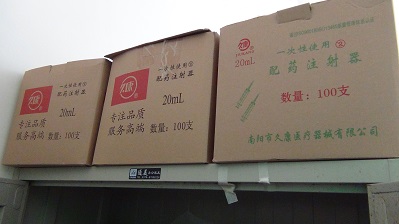 一次性使用
配药注射器
久康
20mL
专注品质
服务高端
数量：100支
一次性使用
配药注射器
久康
20mL
专注品质
服务高端
数量：100支
一次性使用
20mL
配药注射器
数量：100支
南阳市久康医疗器械有限公司